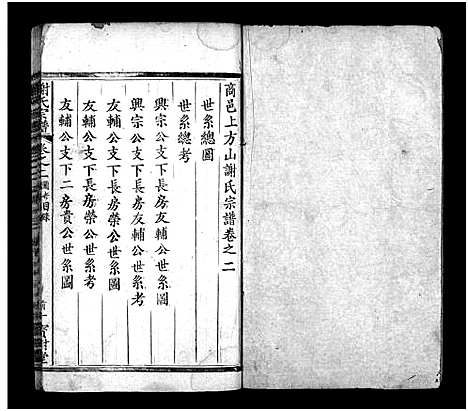 商邑上方山謝氏宗譜卷之二
世系總圖
世系總考
興宗公支下長房友輔公世系圖
興宗公支下長房友輔公世系考
友輔公支下長房榮公世系圖
友輔公支下長房榮公世系考
友輔公支下二房貴公世系圖
謝氏宗譜
卷之二
圖考目錄
寶樹堂